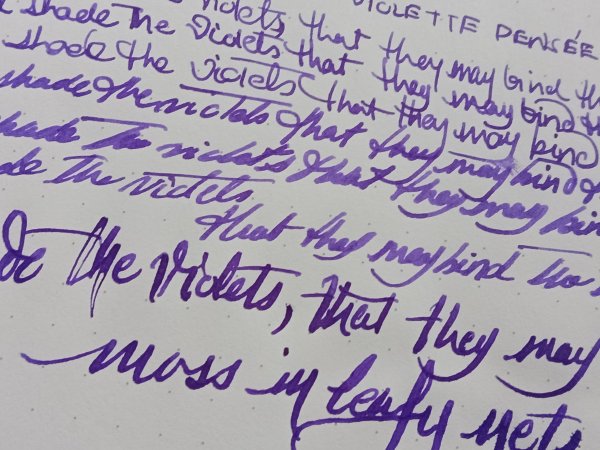 VIOLETTE PENSÉE
shade the violets that they may bind th
shade the violets that they may bind the
shade the violets that they may bind
shade the violets that they may bind t
hade the violets that they may bin
de the violets
that they may bind the
de the violets, that they may
moss in leafy nets